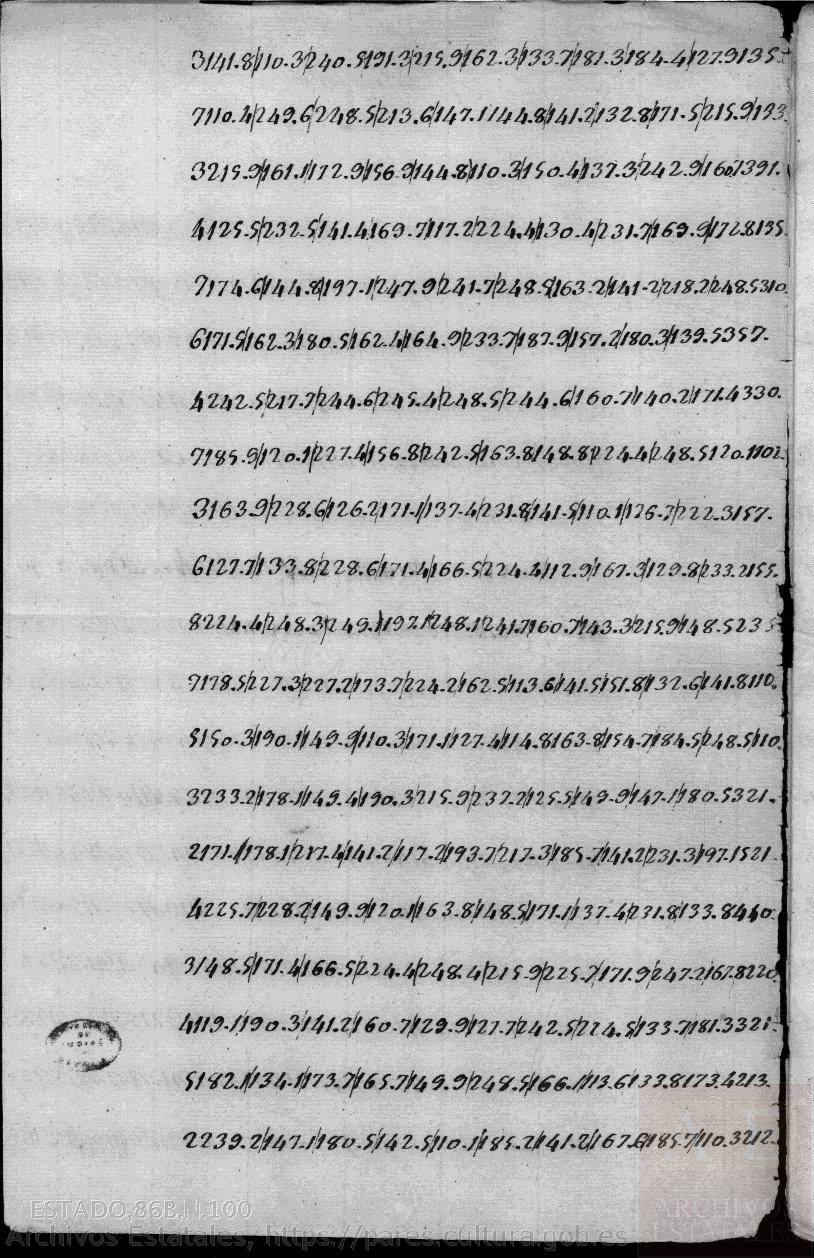 3141.8/110.3/240.5191.3/215.9/162.3/133.7/181.3/184.4/127.9135.
7110.4/249.6/248.5/213.6/147.1/144.8/141.2/132.8/171.5/215.9/193.
3215.9/161.1/172.9/156.9/144.8/110.3/150.4/137.3/242.9/160.7391.
4125.5/232.5/141.4/169.7/117.2/224.4/130.4/231.7/169.9/172.8135.
7174.6/144.8/197.1/247.9/241.7/248.5/163.2/141.2/218.2/248.5310.
6171.5/162.3/180.5/162.4/164.9/233.7/187.9/157.2/180.3/139.5357.
4242.5/217.7/244.6/245.4/248.5/244.6/160.7/140.2/171.4330.
7185.9/120.1/227.4/156.8/242.5/163.8/148.8/224.4/248.5120.1102.
3163.9/228.6/126.2/171.1/137.4/231.8/141.5/110.1/126.7/222.3157.
6127.7/133.8/228.6/171.4/166.5/224.4/112.9/167.3/129.8/233.2155.
8224.4/248.3/249.1/197.1/248.1/241.7/160.7/143.3/215.9/148.5235
7178.5/227.3/227.2/173.7/224.2/162.5/113.6/141.5/151.8/132.6/141.8110.
5150.3/190.1/149.9/110.3/171.1/127.4/114.8/163.8/154.7/184.5/248.5/110.
3233.2/178.1/149.4/190.3/215.9/237.2/125.5/149.9/147.1/180.5321.
2171.1/178.1/217.4/141.2/117.2/193.7/217.3/185.7/141.2/231.3/197.1521.
4225.7/228.2/149.9/120.1/163.8/148.5/171.1/137.4/231.8/133.8440.
3148.5/171.4/166.5/224.4/248.4/215.9/225.7/171.9/247.2/167.8220.
4119.1/190.3/141.2/160.7/129.9/127.7/242.5/224.5/133.7/181.3321.
5182.1/134.1/173.7/165.7/149.9/248.5/166.1/113.6/133.8173.4213.
2239.2/147.1/180.5/142.5/110.1/185.2/141.2/167.6/185.7/110.3212.
ESTADO,86B,N.100
Archivos Estatales, https://pares.cultura.gob.es